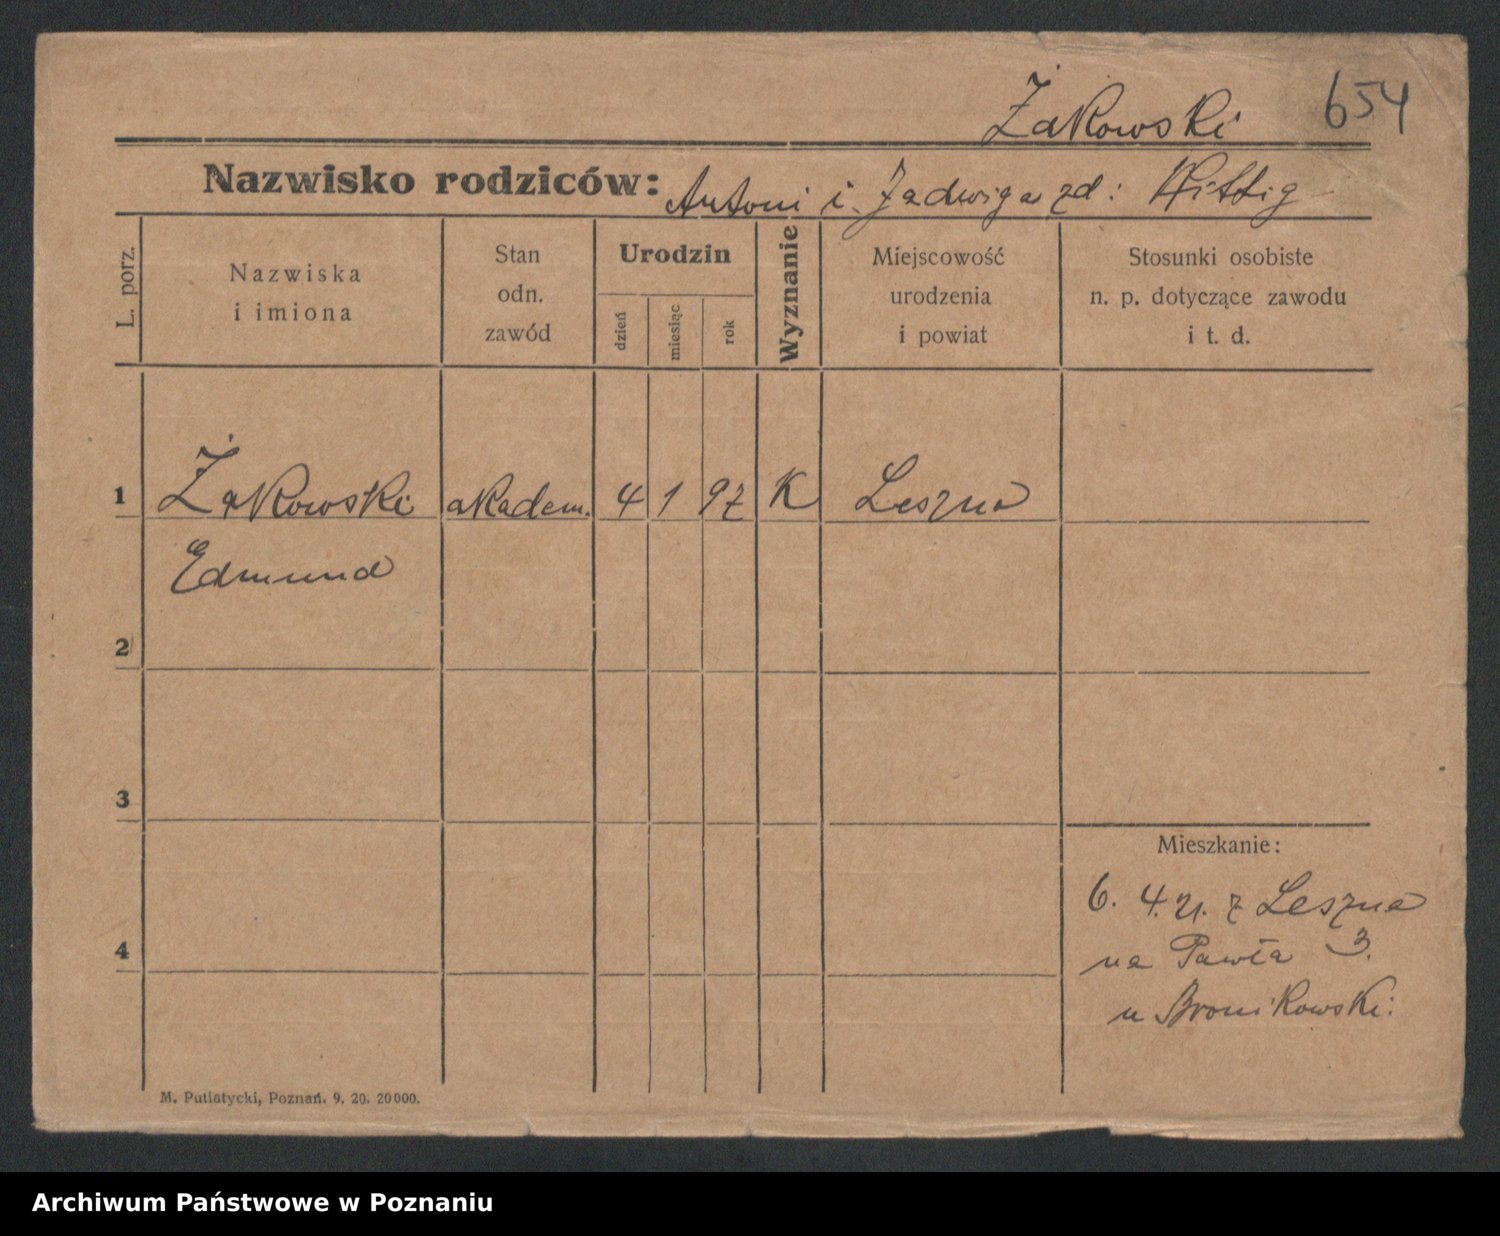 Żakowski 654
Nazwisko rodziców: Antoni i Jadwiga zd: Wittig
L. porz.
Nazwiska
i imiona
Stan
odn.
zawód
Urodzin
dzień
miesiąc
rok
Wyznanie
Miejscowość
urodzenia
i powiat
Stosunki osobiste
n. p. dotyczące zawodu
i t. d.
1 Żakowski akadem. 4 1 97 K Leszno
Edmund
2
3
4
Mieszkanie:
6. 4. 21. z Leszna
na Pawła 3.
u Bronikowski.
M. Putiatycki, Poznań. 9. 20. 20000.
Archiwum Państwowe w Poznaniu